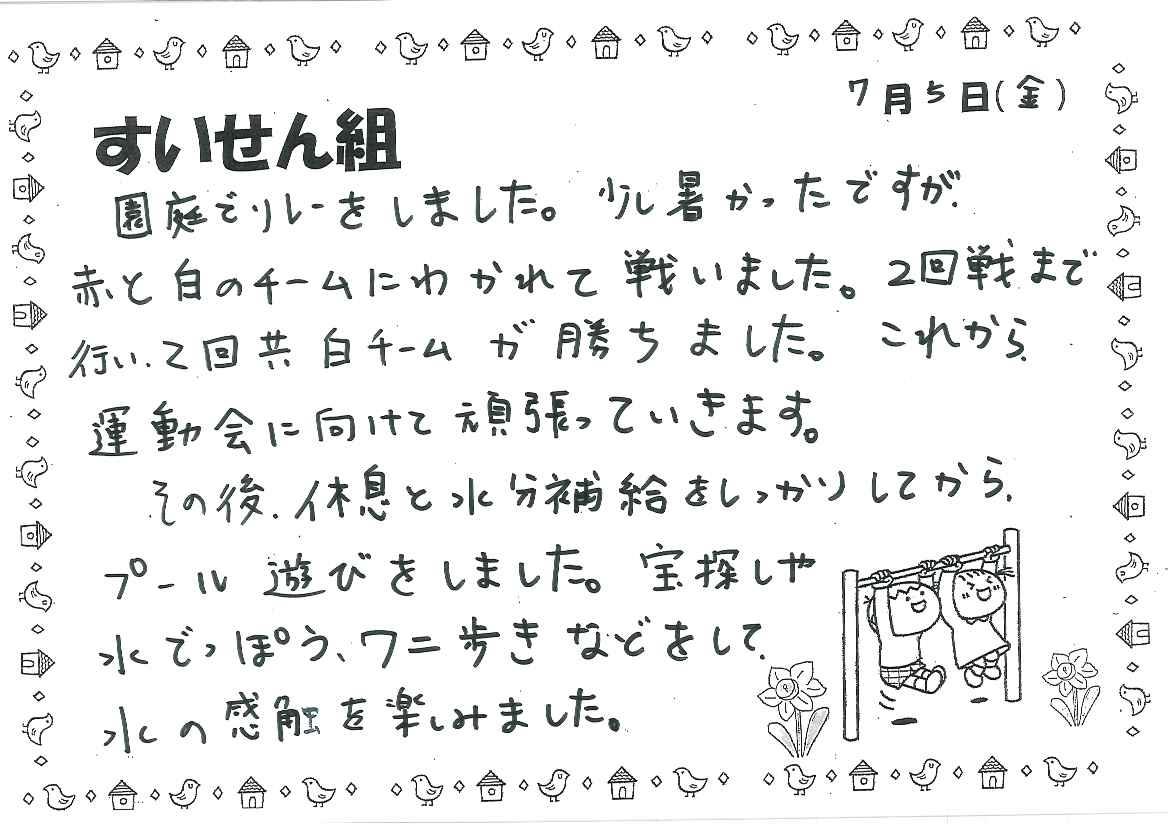 7月5日(金)
すいせん組
園庭でリレーをしました。少し暑かったですが、
赤と白のチームにわかれて戦いました。2回戦まで
行い、2回共白チームが勝ちました。これから、
運動会に向けて頑張っていきます。
その後、休息と水分補給をしっかりしてから、
プール遊びをしました。宝探しや
水でっぽう、ワニ歩きなどをして、
水の感触を楽しみました。